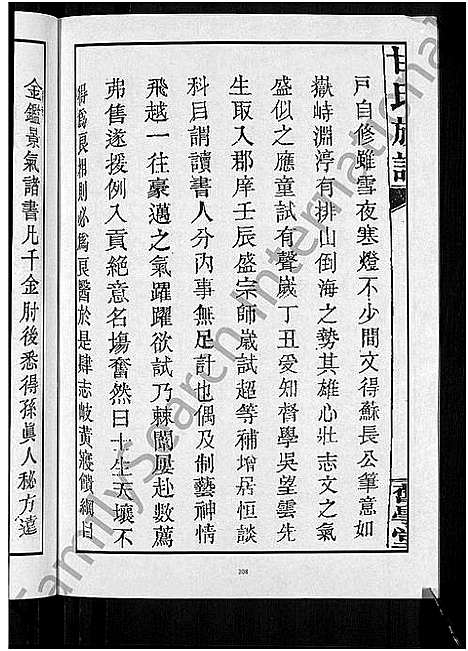 甘氏族譜
戶自修雖雪夜寒燈不少間文得蘇長公筆意如
嶽峙淵渟有排山倒海之勢其雄心壯志文之氣
盛似之應童試有聲嵗丁丑爱知督學吳望雲先
生取入郡庠壬辰盛宗師嵗試超等補增居恒談
科目謂讀書人分内事無足計也偶及制藝神情
飛越一往豪邁之氣躍躍欲試乃棘闈屢赴數薦
弗售遂援例入貢絶意名塲奮然曰士生天壤不
得爲良相則必爲良醫於是肆志岐黄寢饋綱目
金鑑景氣諸書凡千金肘後悉得孫眞人秘方遠
208
FamilySearch International